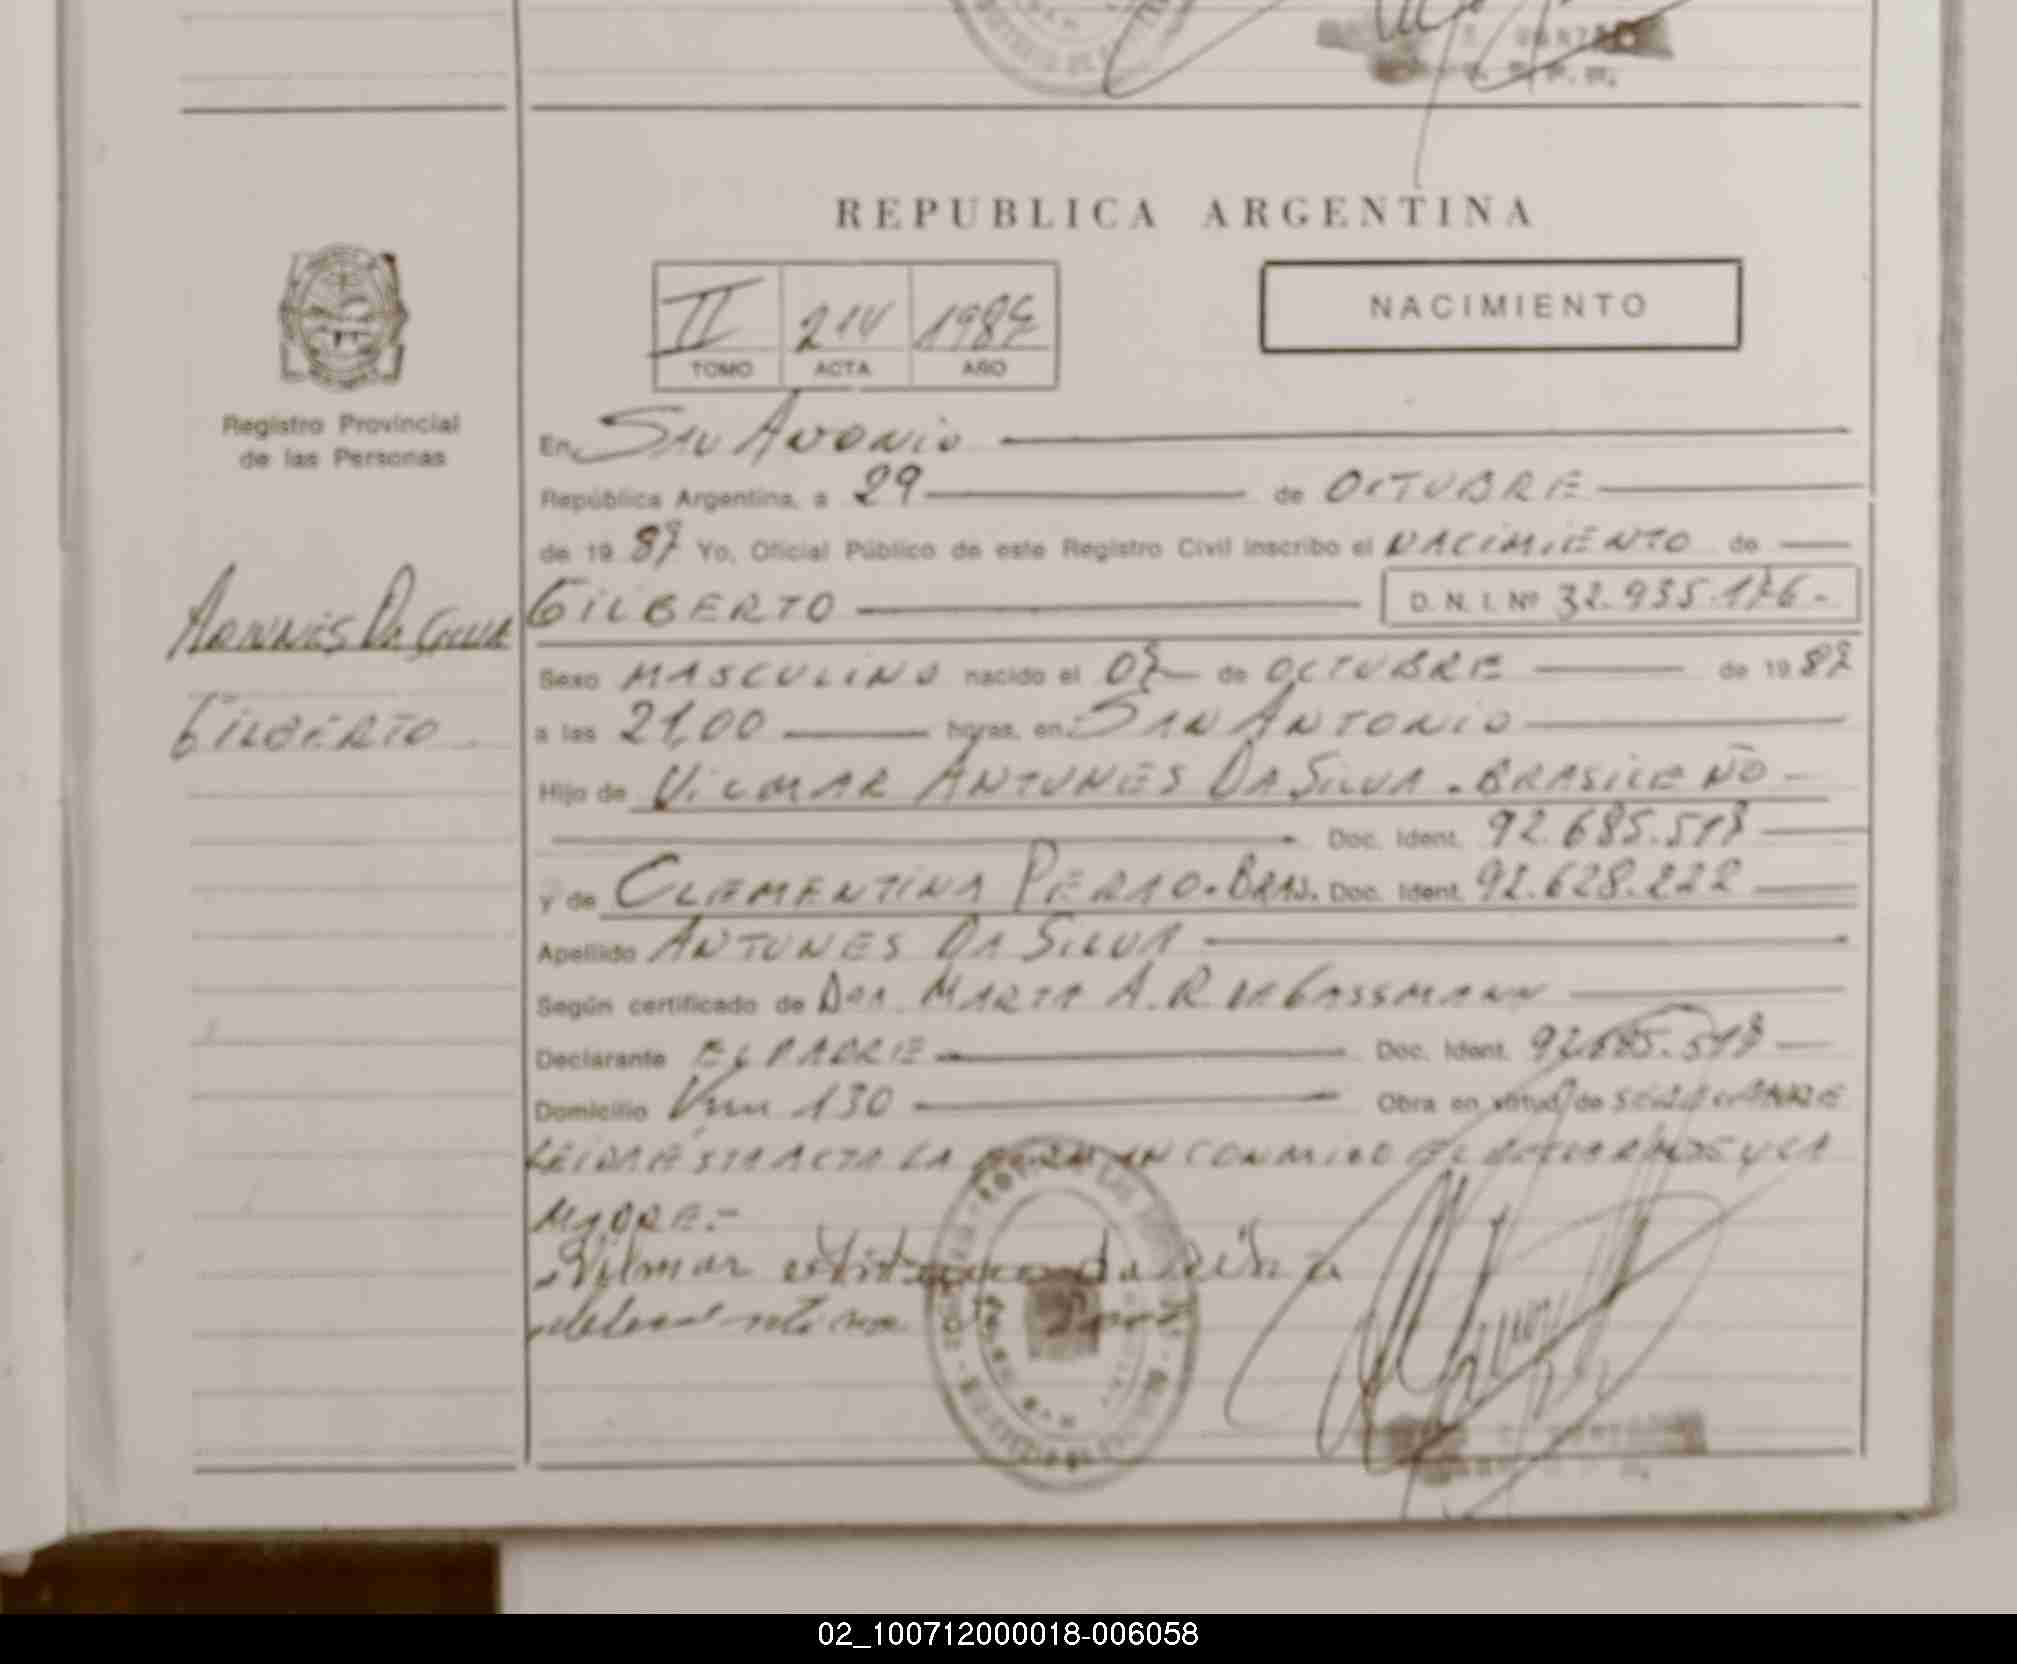 REPUBLICA ARGENTINA
II 214 1987
TOMO ACTA AÑO
NACIMIENTO
Registro Provincial
de las Personas
ANTUNES DA SILVA
GILBERTO
En SAN ANTONIO
República Argentina, a 29 de OCTUBRE
de 19 87 Yo, Oficial Público de este Registro Civil inscribo el NACIMIENTO de
GILBERTO D. N. I. Nº 32.935.176.-
Sexo MASCULINO nacido el 07 de OCTUBRE de 19 87
a las 21,00 horas, en SAN ANTONIO
Hijo de VILMAR ANTUNES DA SILVA. BRASILEÑO
Doc. Ident. 92.685.517
y de CLEMENTINA BRAS. Doc. Ident. 92.628.222
Apellido ANTUNES DA SILVA
Según certificado de DRA. MARTA A. R. DE GASSMANN
Declarante EL PADRE Doc. Ident. 92.685.517
Domicilio Km 130 Obra en virtud de SER EL PADRE
LEIDA ESTA ACTA LA FIRMAN CONMIGO EL DECLARANTE Y LA
MADRE.-
Vilmar da
02_100712000018-006058